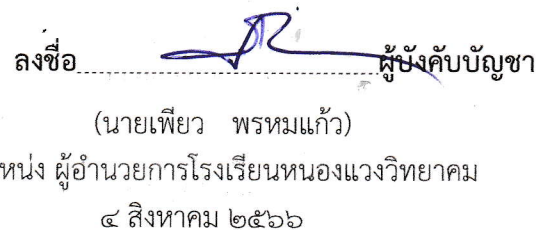 ลงชื่อ..........................................ผู้บังคับบัญชา
(นายเพียว พรหมแก้ว)
หน่ง ผู้อำนวยการโรงเรียนหนองแวงวิทยาคม
๔ สิงหาคม ๒๕๖๖